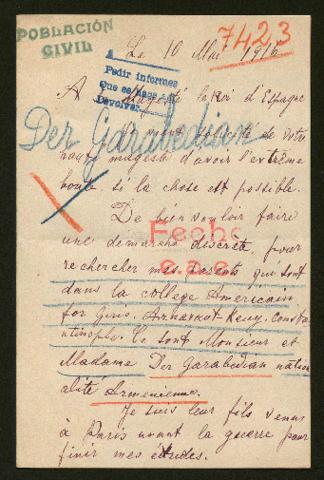 POBLACIÓN
CIVIL
7423
Le 10 Mai 1916
Pedir informes
Que se haga
Devolver
A Majesté le Roi d'Espagne
Der Garabedian
votre
magesté d'avoir l'extrême
bonté si la chose est possible.
De bien vouloir faire
Fecho
une demarche discrète pour
rechercher mes parents qui sont
dans la collège Américain
for Girls. Arnaout Keuy. Constan
tinople. Ce sont Monsieur et
Madame Der Garabedian nation
alité Armenienne.
Je suis leur fils venus
à Paris avant la guerre pour
finir mes études.